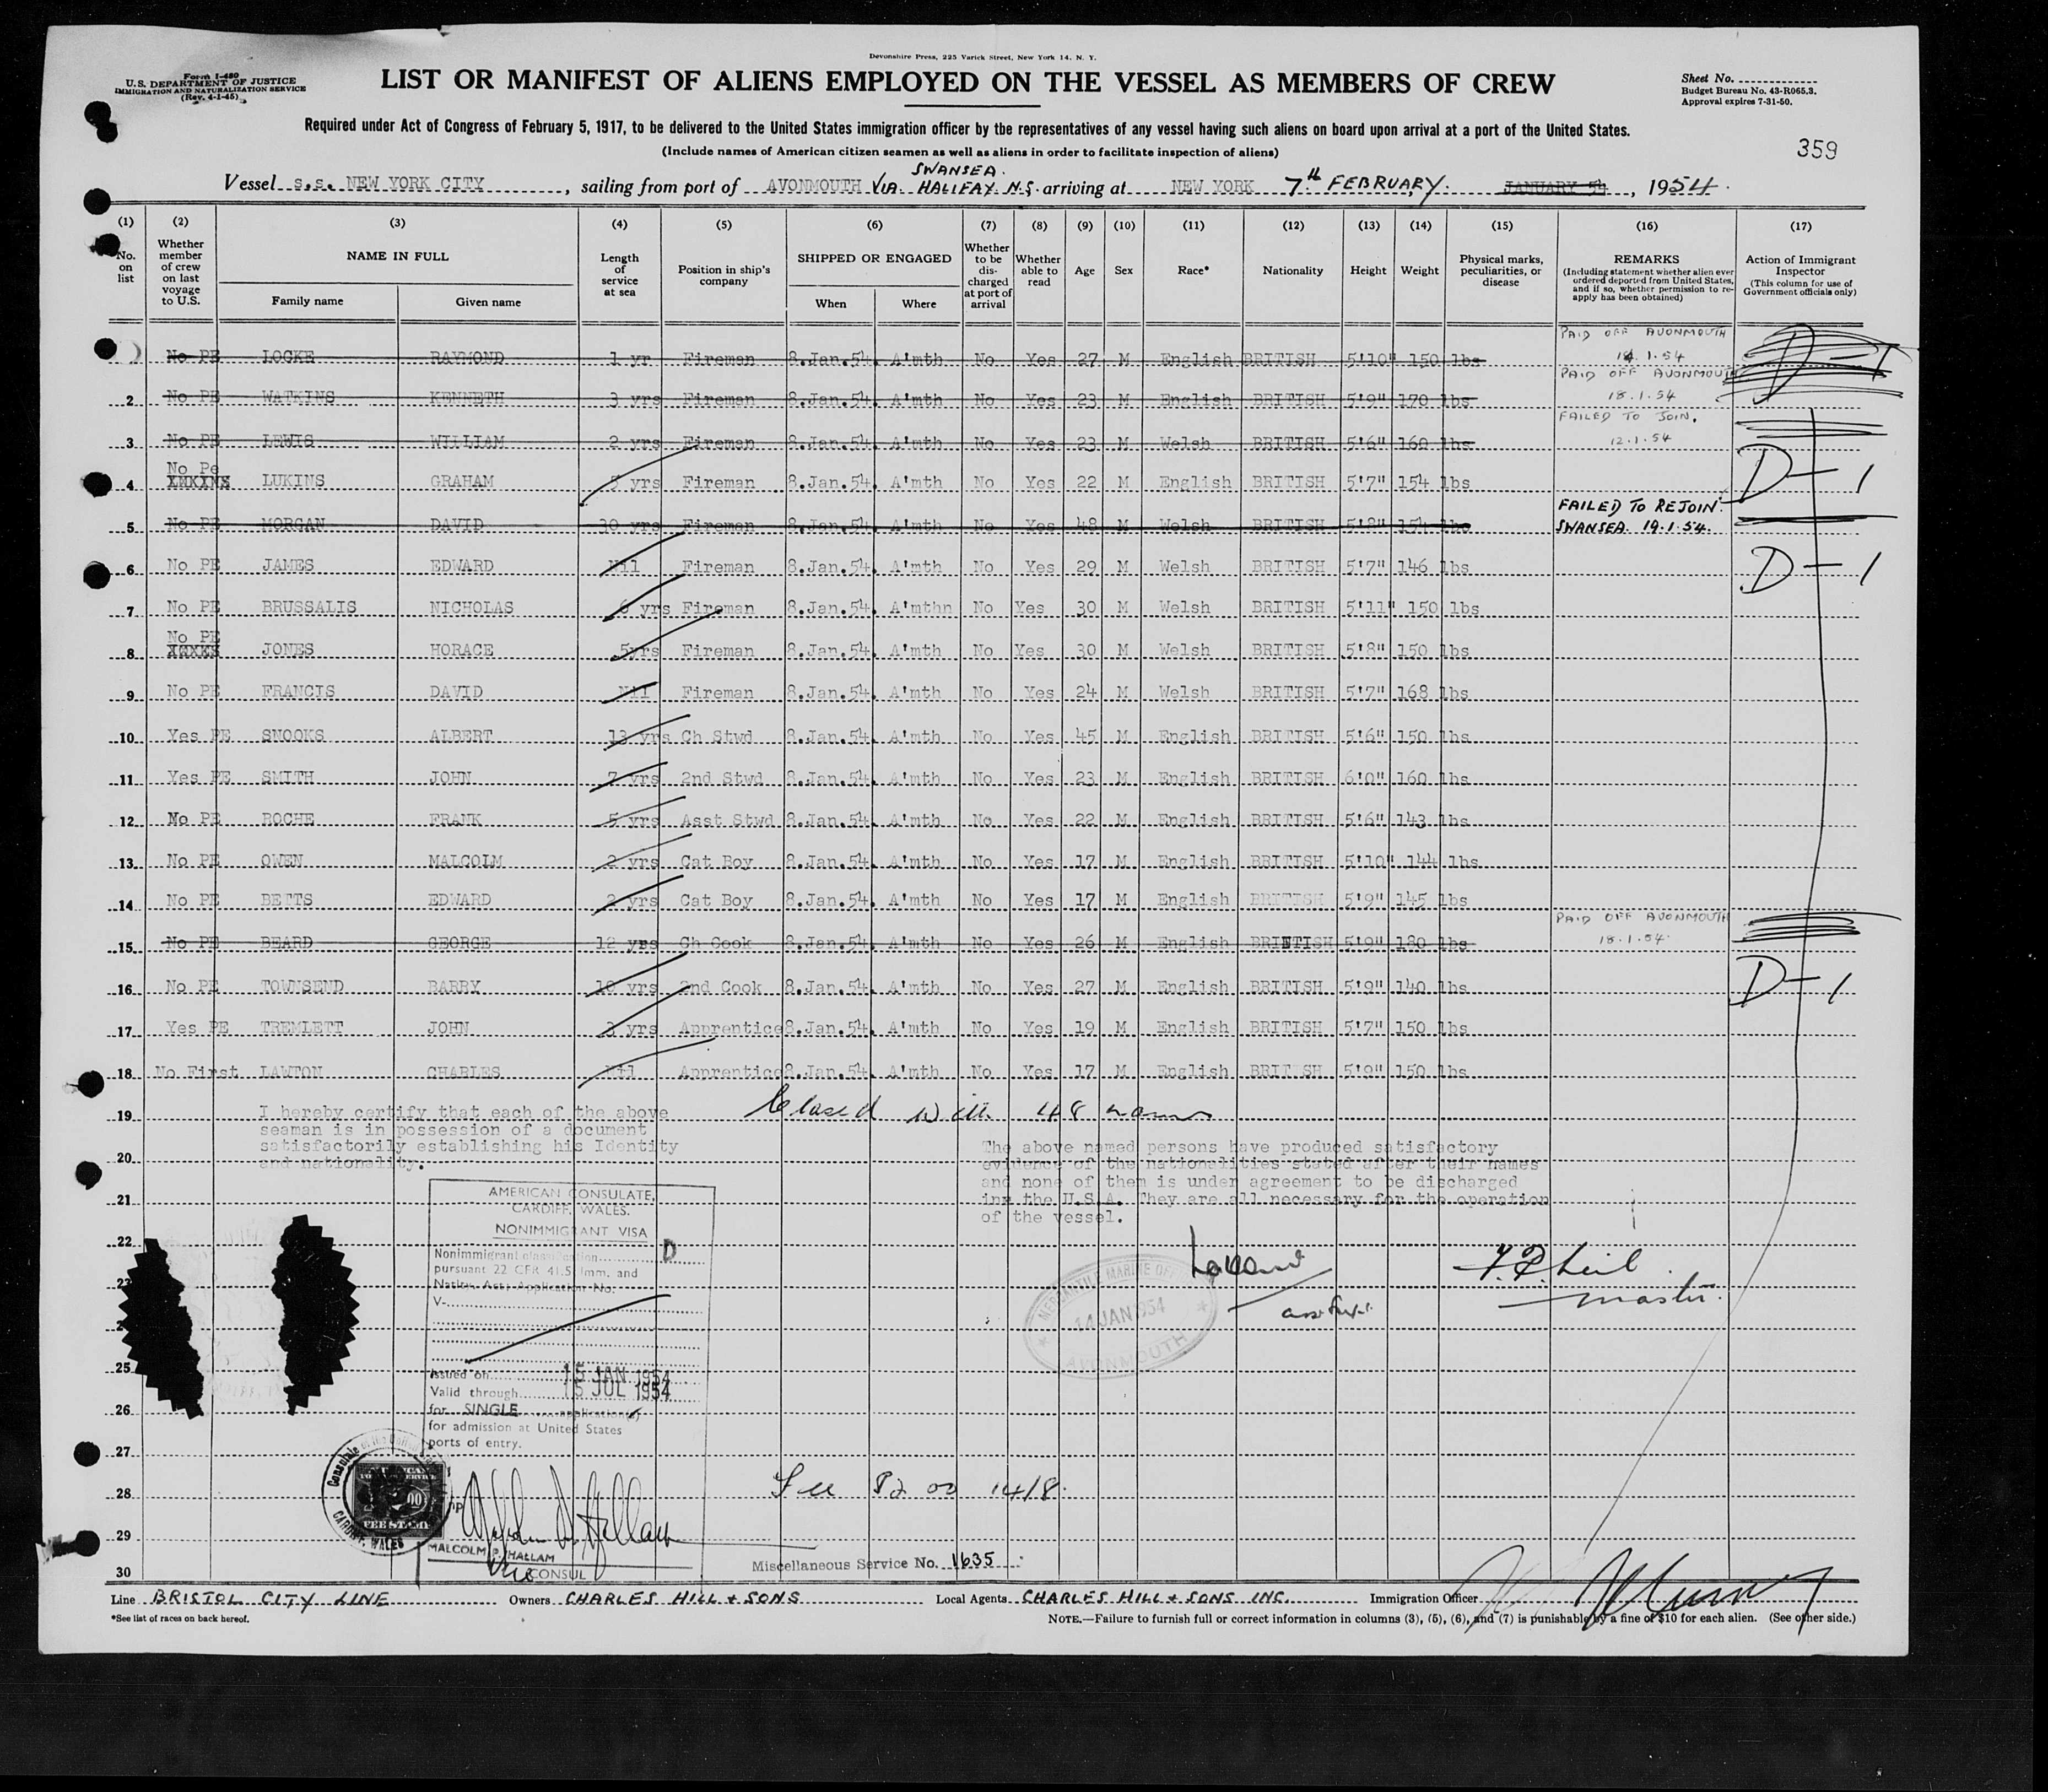 Devonshire Press, 225 Varick Street, New York 14, N. Y.
Form I-480
U.S. DEPARTMENT OF JUSTICE
IMMIGRATION AND NATURALIZATION SERVICE
(Rev. 4-1-45)
LIST OR MANIFEST OF ALIENS EMPLOYED ON THE VESSEL AS MEMBERS OF CREW
Sheet No.
Budget Bureau No. 43-R065.3.
Approval expires 7-31-50.
Required under Act of Congress of February 5, 1917, to be delivered to the United States immigration officer by the representatives of any vessel having such aliens on board upon arrival at a port of the United States.
(Include names of American citizen seamen as well as aliens in order to facilitate inspection of aliens)
359
SWANSEA.
Vessel s.s. NEW YORK CITY, sailing from port of AVONMOUTH VIA. HALIFAX. N.S. arriving at NEW YORK 7th FEBRUARY. JANUARY 54, 1954.
(1) (2) (3) (4) (5) (6) (7) (8) (9) (10) (11) (12) (13) (14) (15) (16) (17)
No. on list
Whether member of crew on last voyage to U.S.
NAME IN FULL
Family name
Given name
Length of service at sea
Position in ship's company
SHIPPED OR ENGAGED
When
Where
Whether to be discharged at port of arrival
Whether able to read
Age
Sex
Race*
Nationality
Height
Weight
Physical marks, peculiarities, or disease
REMARKS
(Including statement whether alien ever ordered deported from United States, and if so, whether permission to re-apply has been obtained)
Action of Immigrant Inspector
(This column for use of Government officials only)
No PE LOCKE RAYMOND 1 yr Fireman 8.Jan.54. A'mth No Yes 27 M English BRITISH 5'10" 150 lbs PAID OFF AVONMOUTH 18.1.54 D-1
2 No PE WATKINS KENNETH 3 yrs Fireman 8.Jan.54. A'mth No Yes 23 M English BRITISH 5'9" 170 lbs PAID OFF AVONMOUTH 18.1.54
3 No PE LEWIS WILLIAM 2 yrs Fireman 8.Jan.54. A'mth No Yes 23 M Welsh BRITISH 5'6" 160 lbs FAILED TO JOIN. 12.1.54
4 No Pe LUKINS GRAHAM 5 yrs Fireman 8.Jan.54. A'mth No Yes 22 M English BRITISH 5'7" 154 lbs D-1
5 No PE MORGAN DAVID 30 yrs Fireman 8.Jan.54. A'mth No Yes 48 M Welsh BRITISH 5'8" 154 lbs FAILED TO REJOIN. SWANSEA. 19.1.54.
6 No PE JAMES EDWARD Nil Fireman 8.Jan.54. A'mth No Yes 29 M Welsh BRITISH 5'7" 146 lbs D-1
7 No PE BRUSSALIS NICHOLAS 6 yrs Fireman 8.Jan.54. A'mthn No Yes 30 M Welsh BRITISH 5'11" 150 lbs
8 No PE JONES HORACE 5yrs Fireman 8.Jan.54. A'mth No Yes 30 M Welsh BRITISH 5'8" 150 lbs
9 No PE FRANCIS DAVID Nil Fireman 8.Jan.54. A'mth No Yes 24 M Welsh BRITISH 5'7" 168 lbs
10 Yes PE SNOOKS ALBERT 13 yrs Ch Stwd 8.Jan.54. A'mth No Yes 45 M English BRITISH 5'6" 150 lbs
11 Yes PE SMITH JOHN 7 yrs 2nd Stwd 8.Jan.54. A'mth No Yes 23 M English BRITISH 6'0" 160 lbs
12 No PE ROCHE FRANK 5 yrs Asst Stwd 8.Jan.54. A'mth No Yes 22 M English BRITISH 5'6" 143 lbs
13 No PE OWEN MALCOLM 2 yrs Cat Boy 8.Jan.54. A'mth No Yes 17 M English BRITISH 5'10" 144 lbs
14 No PE BETTS EDWARD 2 yrs Cat Boy 8.Jan.54. A'mth No Yes 17 M English BRITISH 5'9" 145 lbs
15 No PE BEARD GEORGE 12 yrs Ch Cook 8.Jan.54. A'mth No Yes 26 M English BRITISH 5'9" 180 lbs PAID OFF AVONMOUTH 18.1.54.
16 No PE TOWNSEND BARRY 10 yrs 2nd Cook 8.Jan.54. A'mth No Yes 27 M English BRITISH 5'9" 140 lbs D-1
17 Yes PE TREMLETT JOHN 3 yrs Apprentice 8.Jan.54. A'mth No Yes 19 M English BRITISH 5'7" 150 lbs
18 No First LAWTON CHARLES Nil Apprentice 8.Jan.54. A'mth No Yes 17 M English BRITISH 5'9" 150 lbs
19
Closed with 48 names
I hereby certify that each of the above
seaman is in possession of a document
satisfactorily establishing his Identity
and nationality.
The above named persons have produced satisfactory
evidence of the nationalities stated after their names
and none of them is under agreement to be discharged
in the U.S.A. They are all necessary for the operation
of the vessel.
20
21
22
25
26
27
28
29
30
AMERICAN CONSULATE,
CARDIFF, WALES.
NONIMMIGRANT VISA
Nonimmigrant classification D
pursuant 22 CFR 41.5 Imm. and
Natlty. Act; Application No.
V-
Issued on 15 JAN 1954
Valid through 15 JUL 1954
for SINGLE application(s)
for admission at United States
ports of entry.
MERCANTILE MARINE OFFICE
14 JAN 1954
AVONMOUTH
master.
CARDIFF, WALES
FEE STAMP
MALCOLM P. HALLAM
Vice CONSUL
Fee $2 00 14/8.
Miscellaneous Service No. 1635
Line BRISTOL CITY LINE Owners CHARLES HILL & SONS Local Agents CHARLES HILL & SONS INC. Immigration Officer
*See list of races on back hereof.
NOTE.—Failure to furnish full or correct information in columns (3), (5), (6), and (7) is punishable by a fine of $10 for each alien. (See other side.)